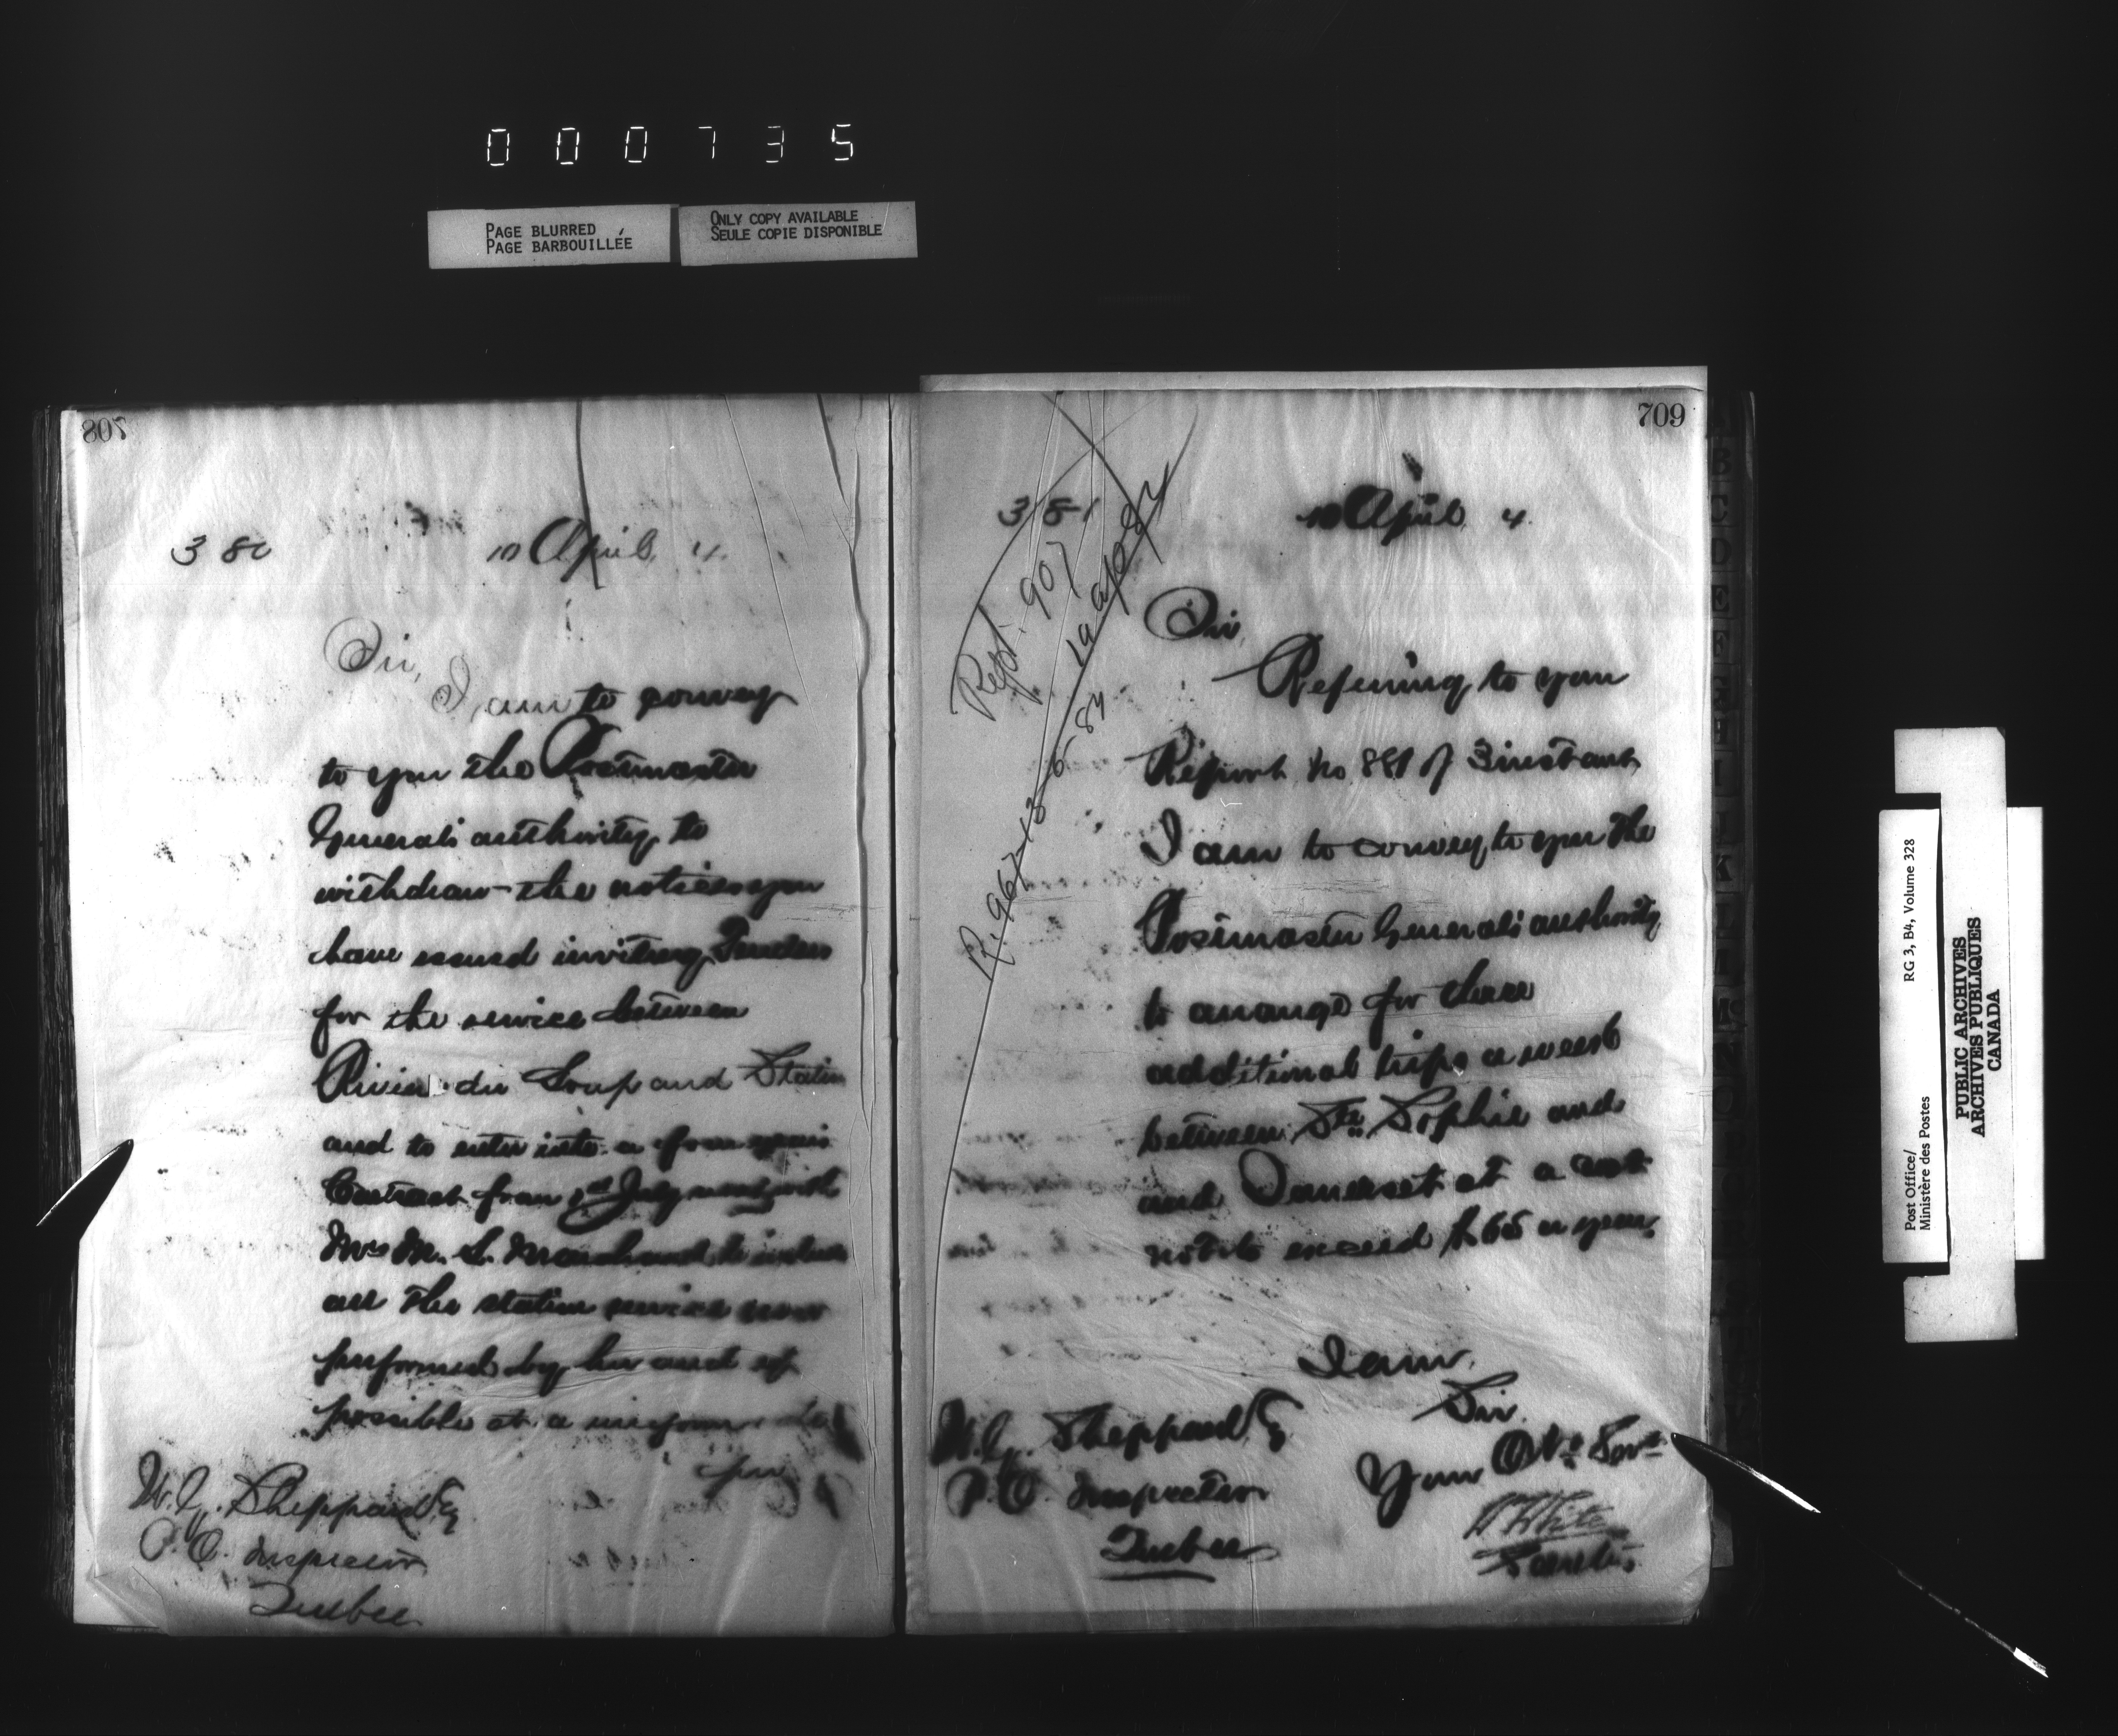 000735
PAGE BLURRED
PAGE BARBOUILLÉE
ONLY COPY AVAILABLE
SEULE COPIE DISPONIBLE
380
10 April 4.
Sir,
I am to convey
to you the Postmaster
Generals authority to
withdraw the notices you
have issued inviting Tenders
for the service between
Rivier du Loup and Station
and to enter into a four years
Contract from 1st July next with
Mrs M. S. Marchand, to include
all the station service now
performed by her and if
possible at a uniform rate
per
W.G. Sheppard Esq
P.O. Inspector
Quebec
709
381
10 April 4.
Rept. 907
19 Apr 84
R. 967-13-5-84
Sir,
Referring to your
Report No 881 of 3 instant
I am to convey to you the
Postmaster Generals authority
to arrange for three
additional trips a week
between Ste Sophie and
and Somerset at a cost
not to exceed $65 a year.
I am,
Sir
Your Obt Servt
W White
Secretary
W.G. Sheppard Esq
P.O. Inspector
Quebec
Post Office/
Ministère des Postes
RG 3, B4, Volume 328
PUBLIC ARCHIVES
ARCHIVES PUBLIQUES
CANADA